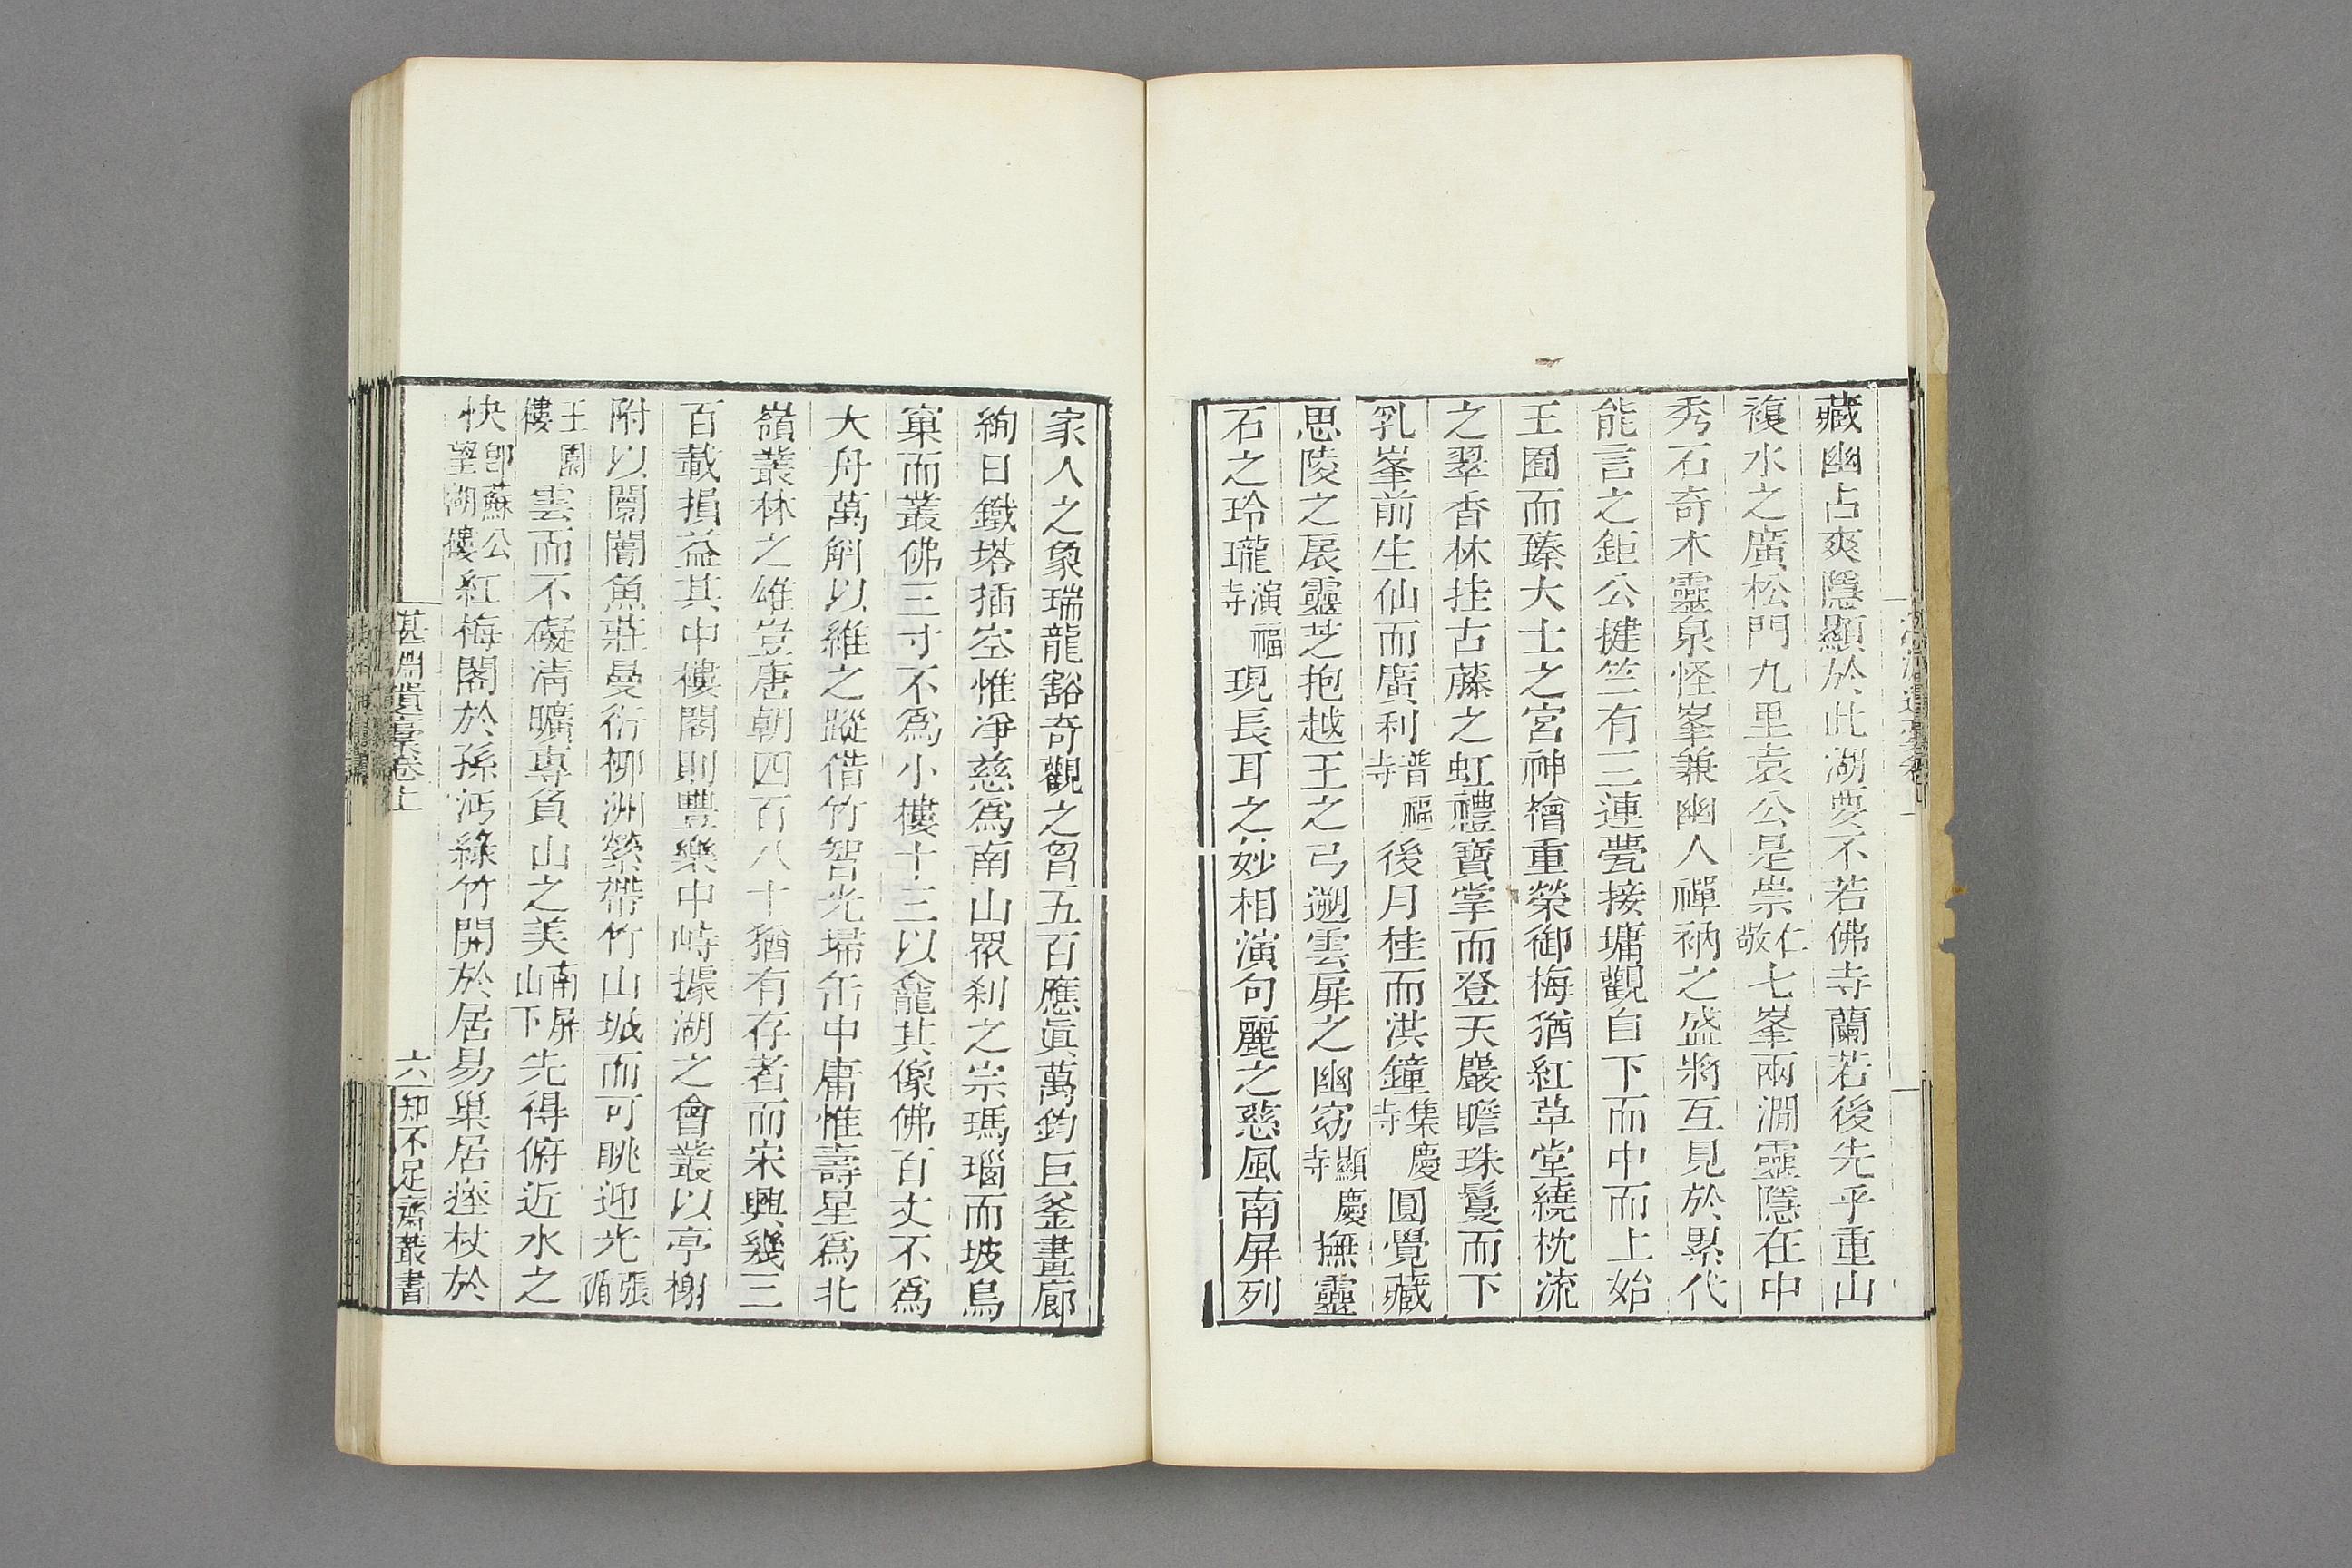 藏幽占爽隱顯於此湖要不若佛寺蘭若後先乎重山
複水之廣松門九里袁公是崇仁敬七峯兩澗靈隱在中
秀石奇木靈泉怪峯兼幽人禪衲之盛將互見於累代
能言之鉅公揵竺有三連甍接墉觀自下而中而上始
王囿而臻大士之宮神檜重榮御梅猶紅草堂繞枕流
之翠香林挂古藤之虹禮寶掌而登天巖瞻珠鬘而下
乳峯前生仙而廣利普福寺後月桂而洪鐘集慶寺圓覺藏
思陵之扆靈芝抱越王之弓遡雲屏之幽窈顯慶寺撫靈
石之玲瓏演福寺現長耳之妙相演句麗之慈風南屏列
家人之象瑞龍豁奇觀之胷五百應眞萬鈞巨釜畫廊
絢日鐵塔插空惟淨慈爲南山眾刹之宗瑪瑙而坡鳥
窠而叢佛三寸不爲小樓十三以龕龕其像佛百丈不爲
大舟萬斛以維之蹤借竹智光埽缶中庸惟壽星爲北
嶺叢林之雄豈唐朝四百八十猶有存者而宋興幾三
百載損益其中樓閣則豐樂中峙據湖之會叢以亭榭
附以闤闠魚莊曼衍柳洲縈帶竹山城而可眺迎光張循
王園樓雲而不礙淸曠專負山之美南屏山下先得俯近水之
快卽蘇公望湖樓紅梅閣於孫沔綠竹開於居易巢居痊杖於
甚淵遺稾卷上
六
知不足齋叢書